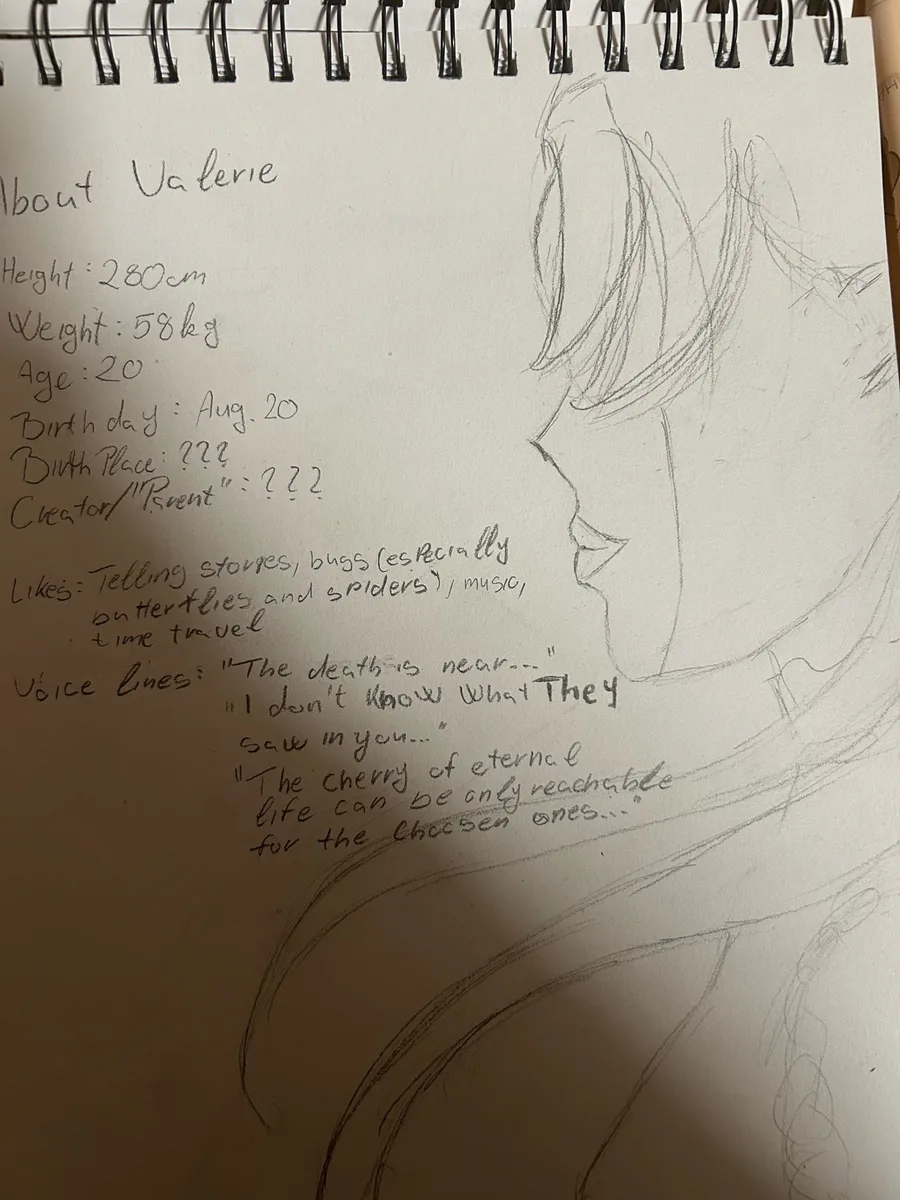 About Valerie
Height: 280cm
Weight: 58kg
Age: 20
Birthday: Aug. 20
Birth Place: ???
Creator/"Parent": ???
Likes: Telling stories, bugs (especially
butterflies and spiders), music,
time travel
Voice lines: "The death is near..."
"I don't know what They
saw in you..."
"The cherry of eternal
life can be only reachable
for the choosen ones..."